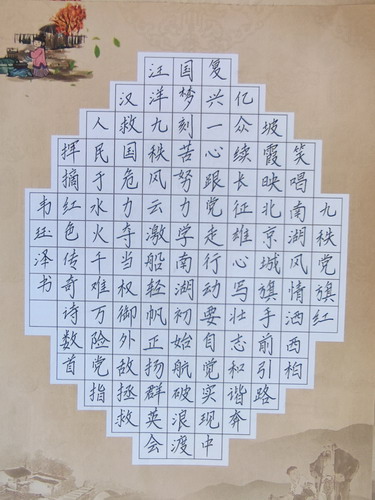 九秩党旗红
笑唱南湖风情洒西柏
坡霞映北京城旗手引路
亿众续长征雄心写壮志和谐奔
复兴一心跟党走行动要自觉实现中
国梦刻苦努力学南湖初始航破浪渡
汪洋九秩风云激船轻帆正扬群英会
汉救国危力夺当权御外敌拯救
人民于水火千难万险党指
挥摘红色传奇诗数首
韦珏泽书